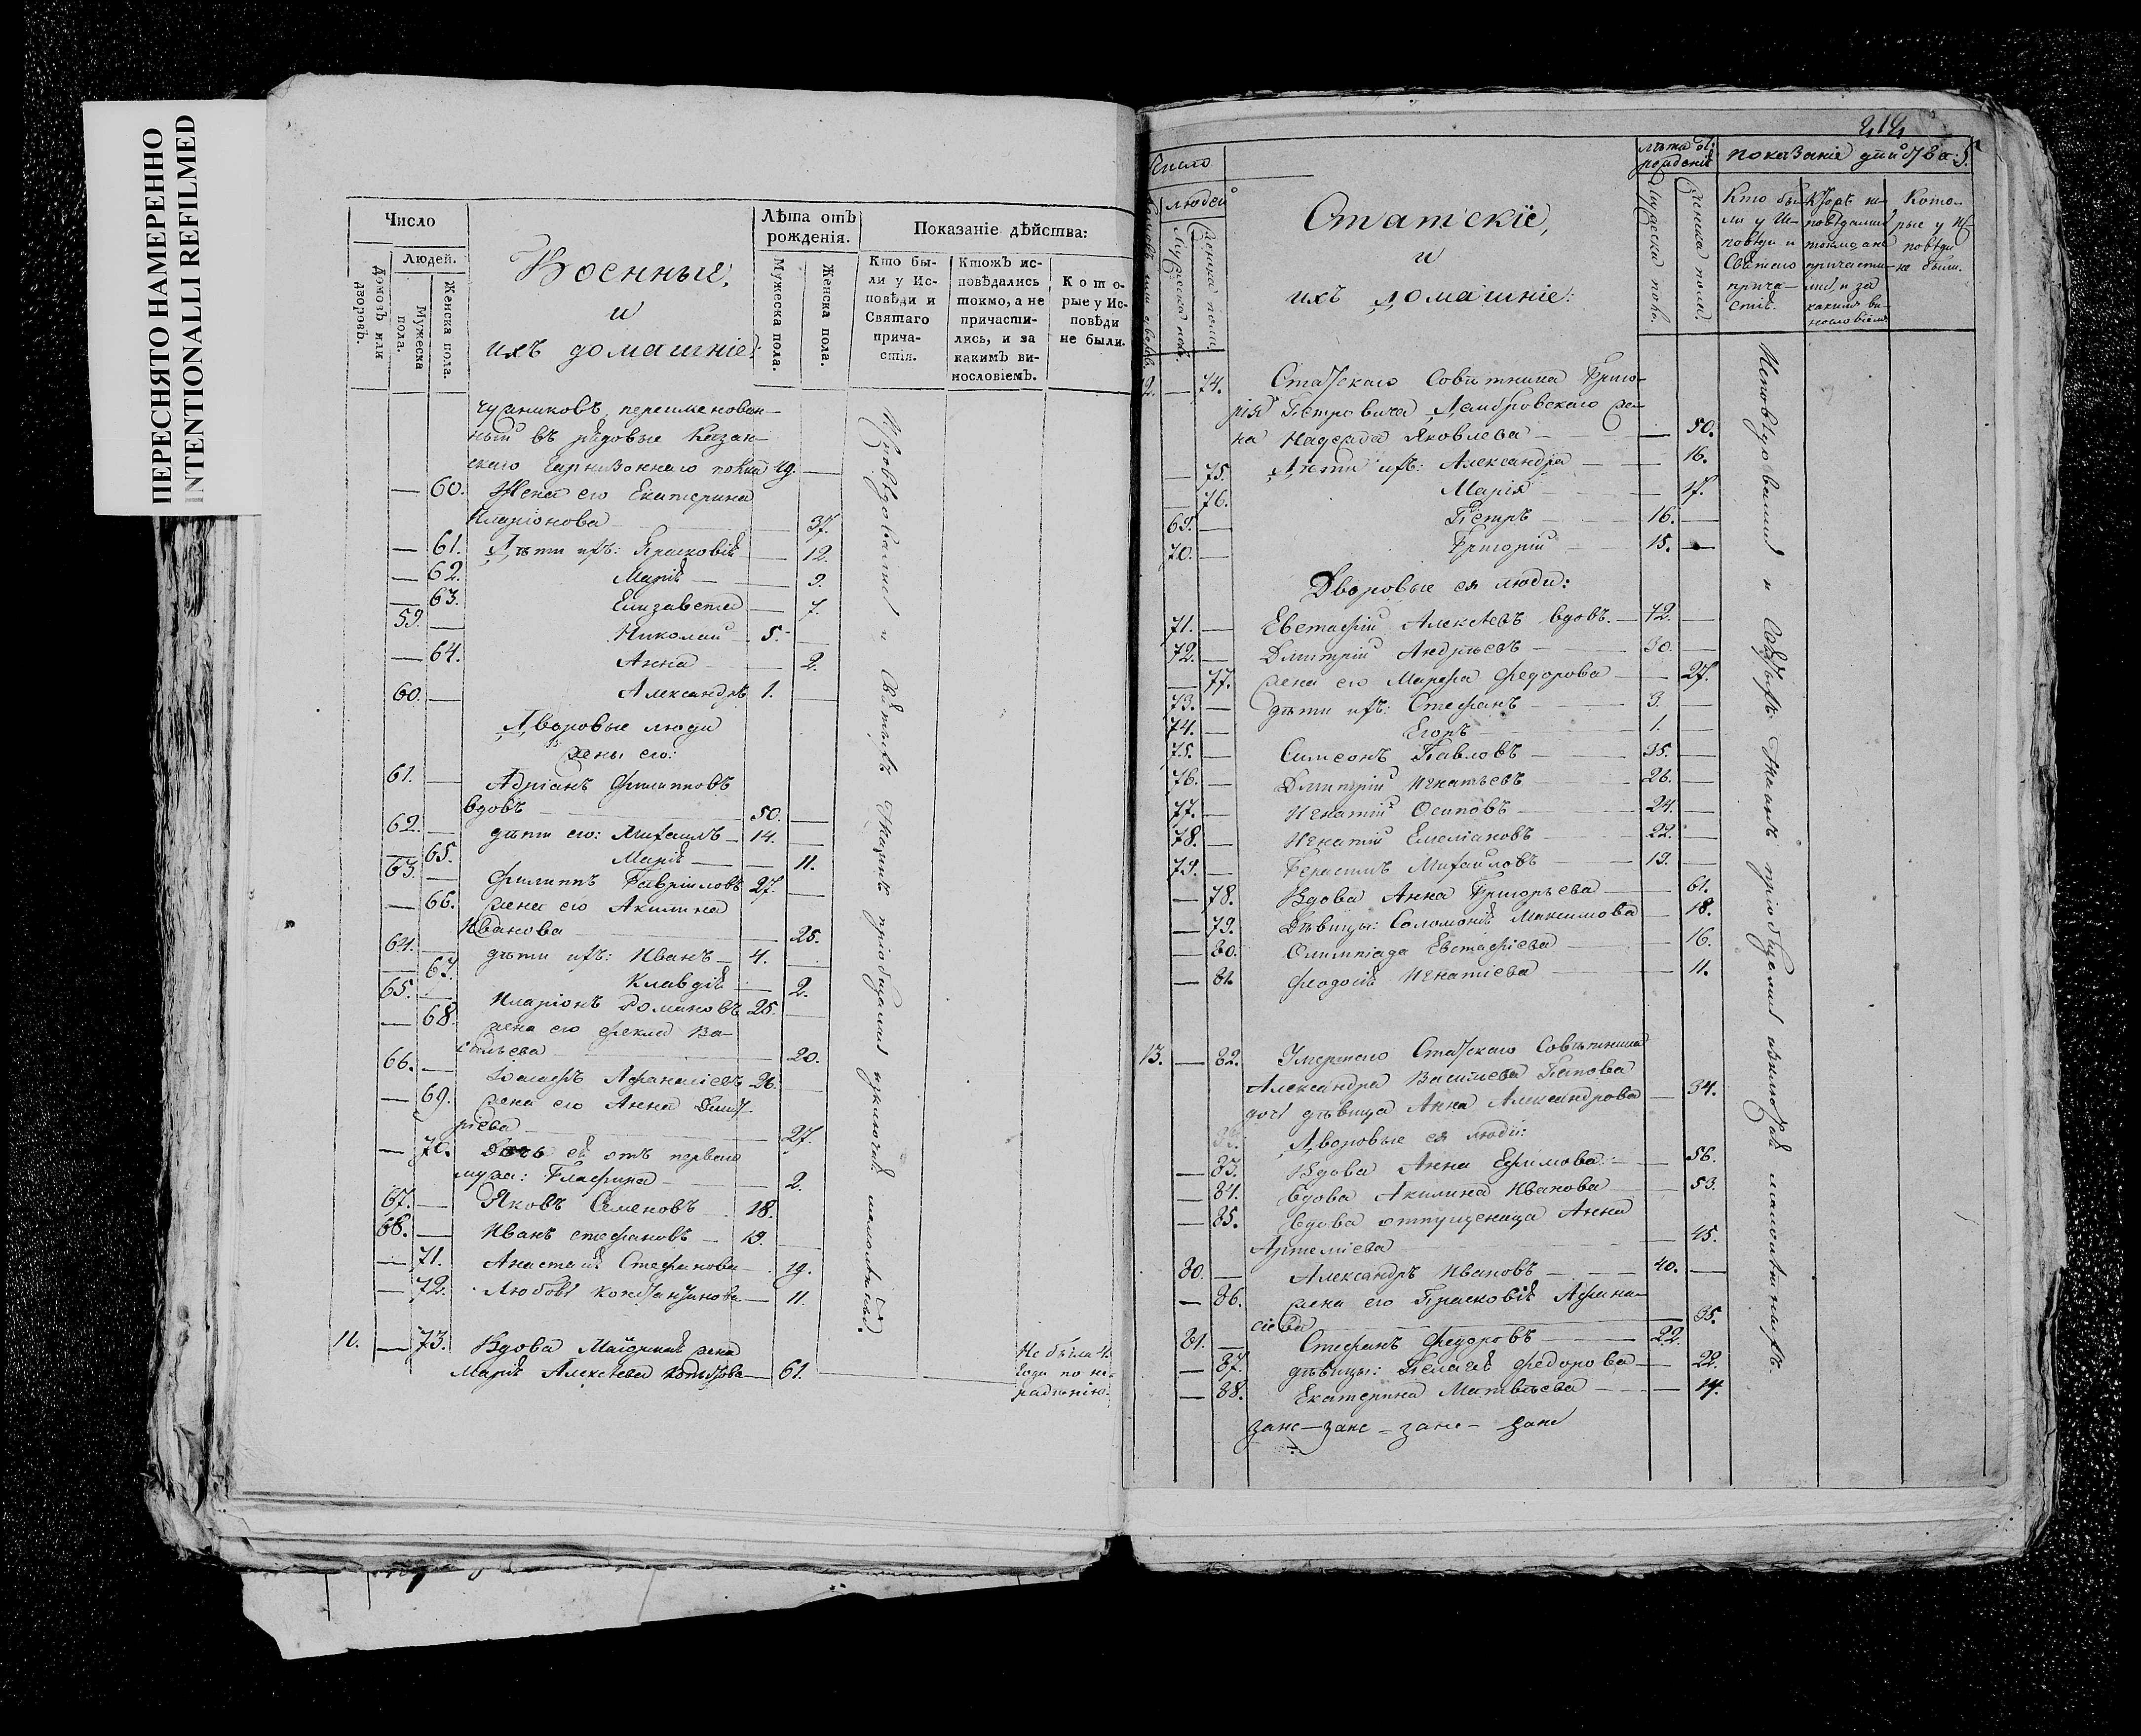 ПЕРЕСНЯТО НАМЕРЕННО
INTENTIONALLI REFILMED
Число
Людей.
Домовъ или дворовъ.
Мужеска пола.
Женска пола.
Военныя,
и
ихъ домашніе:
Лѣта отъ рожденія.
Мужеска пола.
Женска пола.
Показаніе дѣйства:
Кто бы-
ли у Ис-
повѣди и
Святаго
прича-
стія.
Ктожъ ис-
повѣдались
токмо, а не
причасти-
лись, и за
какимъ ви-
нословіемъ.
Кото-
рые у Ис-
повѣди
не были.
переименован-
ный въ рядовые Казан-
скаго Гарнизоннаго полка 49. —
— 60. Жена его Екатерина
Иларіонова — 37.
— 61. Дѣти ихъ: Прасковія — 12.
— 62. Марія — 9.
— 63. Елизавета — 7.
59. — Николай 5. —
— 64. Анна — 2.
60. — Александръ 1. —
Дворовые люди
жены его:
61. — Адріанъ Филипповъ
вдовъ 50. —
62. — дѣти его: Михаилъ 14. —
— 65. Марія — 11.
63. — Филиппъ Гавріиловъ 27. —
— 66. жена его Акилина
Иванова — 25.
64. — дѣти ихъ: Иванъ 4. —
— 67. Клавдія — 2.
65. — Иларіонъ Романовъ 25. —
— 68. жена его Фекла Ва-
сильева — 20.
66. — Афанасіевъ 26. —
— 69. жена его Анна Димит-
ріева — 27.
— 70. Дочь ея отъ перваго
мужа: Глафира — 2.
67. — Яковъ Семеновъ 18.
68. — Иванъ Стефановъ 19. —
— 71. Анастасія Стефанова 19.
— 72. Любовь Константинова — 11.
11. — 73. Вдова Маіорская жена
Марія Алексѣева — 61.
Не была 4.
года по не-
радѣнію.
Исповѣдовались и Святыхъ Таинъ пріобщались изключая малолѣтныхъ.
212
Число
людей
Мужеска пола.
Женска пола
Статскіе,
и
ихъ домашніе:
лѣта отъ
рожденія
Мужеска полъ.
Женска полъ
показаніе дѣйства:
Кто бы-
ли у Ис-
повѣди и
Святаго
прича-
стія.
Ктожъ ис-
повѣдались
токмо, а не
причасти-
лись, и за
какимъ ви-
нословіемъ
Кото-
рые у Ис-
повѣди
не были.
12. — 74. Статскаго Совѣтника Григо-
рія Петровича Домбровскаго же-
на Надежда Яковлева — — 50.
— 75. Дѣти ихъ: Александра — — 16.
— 76. Марія — — 17.
69. — Петръ — 16. —
70. — Григорій — 15. —
Дворовые ея люди:
71. — Евстафій Алексѣевъ вдовъ. — 72. —
72. — Димитрій Андреевъ — 30. —
— 77. жена его Марфа Федорова — — 27.
73. — дѣти ихъ: Стефанъ — 3. —
74. — Егоръ — 1. —
75. — Симеонъ Павловъ — 35. —
76. — Димитрій Игнатьевъ — 26. —
77. — Игнатій Осиповъ — 24. —
78. — Игнатій Емеліановъ — 22. —
79. — Герасимъ Михайловъ — 19. —
— 78. Вдова Анна Григорьева — — 61.
— 79. Дѣвицы: Соломонія Максимова — 18.
— 80. Олимпіада Евстафіева — — 16.
— 81. Феодосія Игнатіева — — 11.
13. — 82. Умершаго Статскаго Совѣтника
Александра Васильева Попова
дочь дѣвица Анна Александрова — 34.
Дворовые ея люди:
— 83. Вдова Анна Ефимова — — 56.
— 84. Вдова Акилина Иванова — — 53.
— 85. Вдова отпущеница Анна
Артеміева — — 45.
80. — Александръ Ивановъ — 40. —
— 86. жена его Прасковія Афана-
сіева — 35.
81. — Стефанъ Федоровъ — 22. —
— 87. дѣвицы: Пелагія Федорова — — 22.
— 88. Екатерина Матвѣева — — 14.
Исповѣдовались и Святыхъ Таинъ пріобщались изключая малолѣтныхъ.